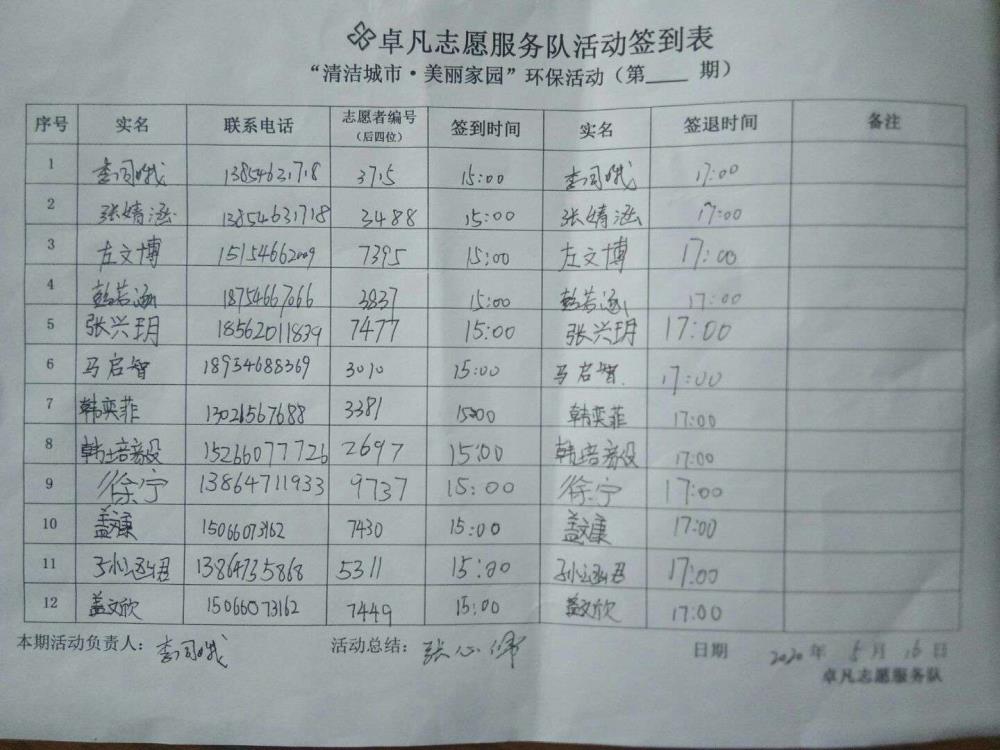 卓凡志愿服务队活动签到表
“清洁城市·美丽家园”环保活动（第____ 期）
序号 实名 联系电话 志愿者编号（后四位） 签到时间 实名 签退时间 备注
1 13854631718 3715 15:00 17:00
2 张婧涵 13854631718 3488 15:00 张婧涵 17:00
3 左文博 15154662009 7395 15:00 左文博 17:00
4 彭若涵 18754667066 3837 15:00 彭若涵 17:00
5 张兴玥 18562011839 7477 15:00 张兴玥 17:00
6 马启智 18954688369 3010 15:00 马启智 17:00
7 韩奕菲 13021567688 3381 15:00 韩奕菲 17:00
8 15266077726 2697 15:00 17:00
9 徐宁 13864711933 9737 15:00 徐宁 17:00
10 盖文康 15066073162 7430 15:00 盖文康 17:00
11 13864735868 5311 15:00 17:00
12 盖文欣 15066073162 7449 15:00 盖文欣 17:00
本期活动负责人： 活动总结：张心 日期 2020 年 5 月 16 日
卓凡志愿服务队